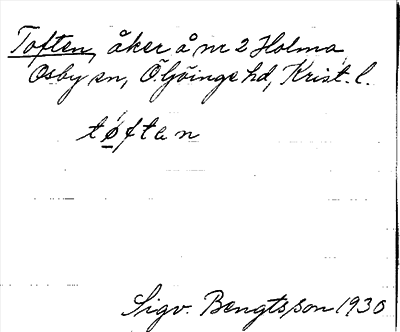 Toften, åker å nr 2 Holma
Osby sn, Ö. Göinge hd, Krist. l.
tøften
Sigv. Bengtsson 1930